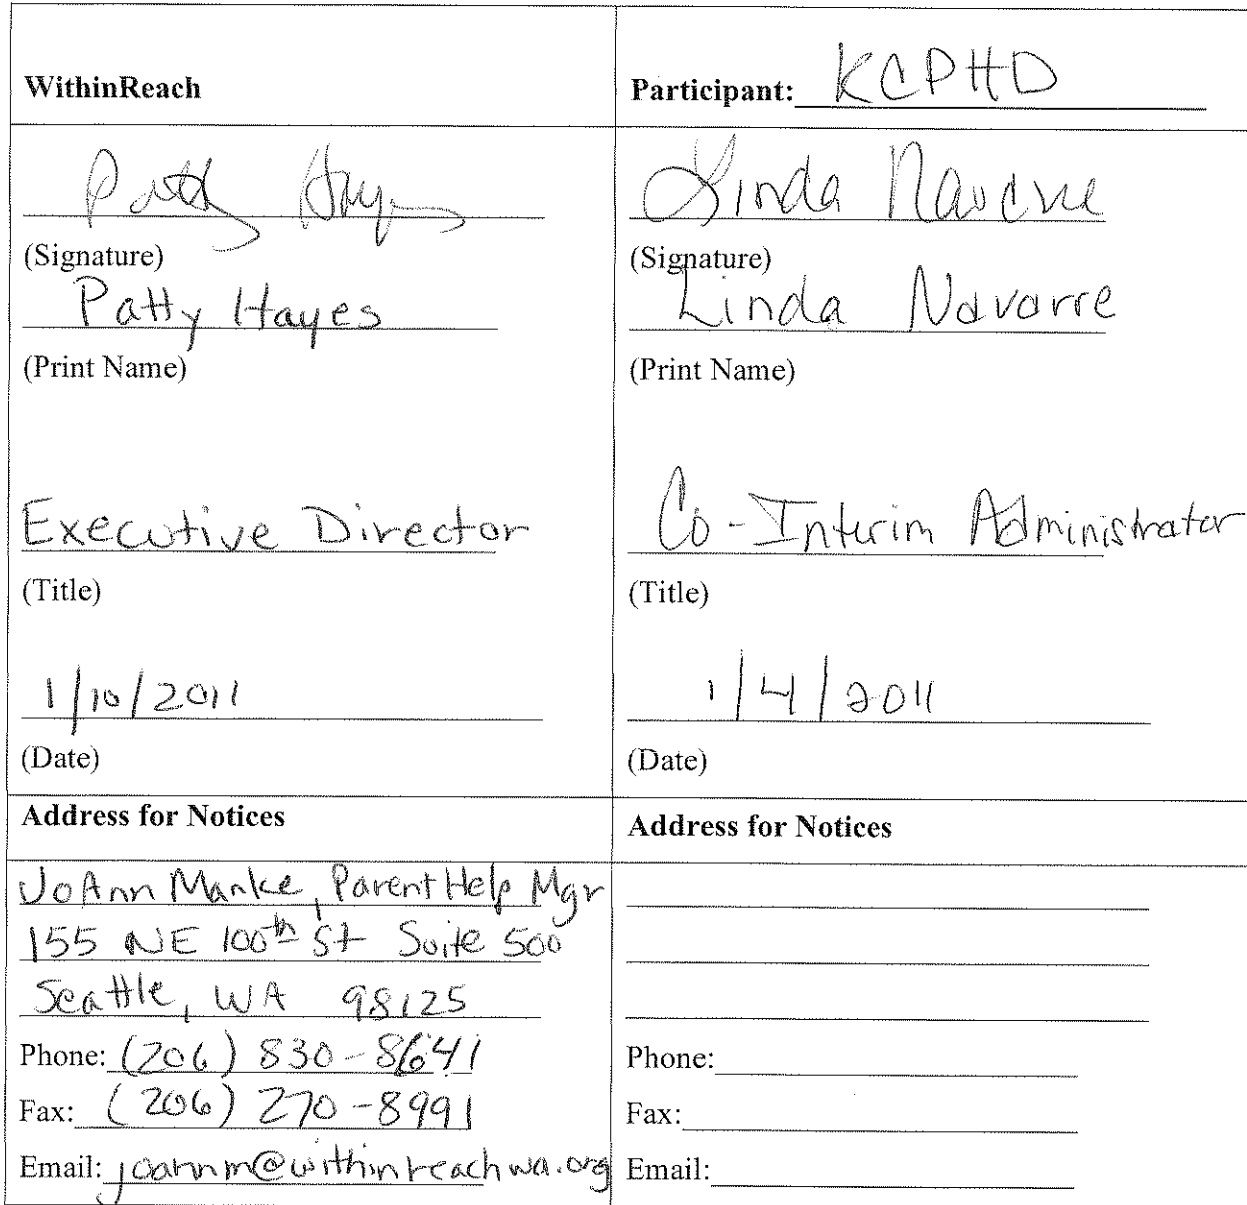 WithinReach
Patty Hayes
(Signature)
Patty Hayes
(Print Name)
Executive Director
(Title)
1/10/2011
(Date)
Participant: KCPHD
Linda Navarre
(Signature)
Linda Navarre
(Print Name)
Co-Interim Administrator
(Title)
1/4/2011
(Date)
Address for Notices
JoAnn Manke, ParentHelp Mgr
155 NE 100th St Suite 500
Seattle, WA 98125
Phone: (206) 830-8641
Fax: (206) 270-8991
Email: joannm@withinreachwa.org
Address for Notices
Phone:
Fax:
Email: